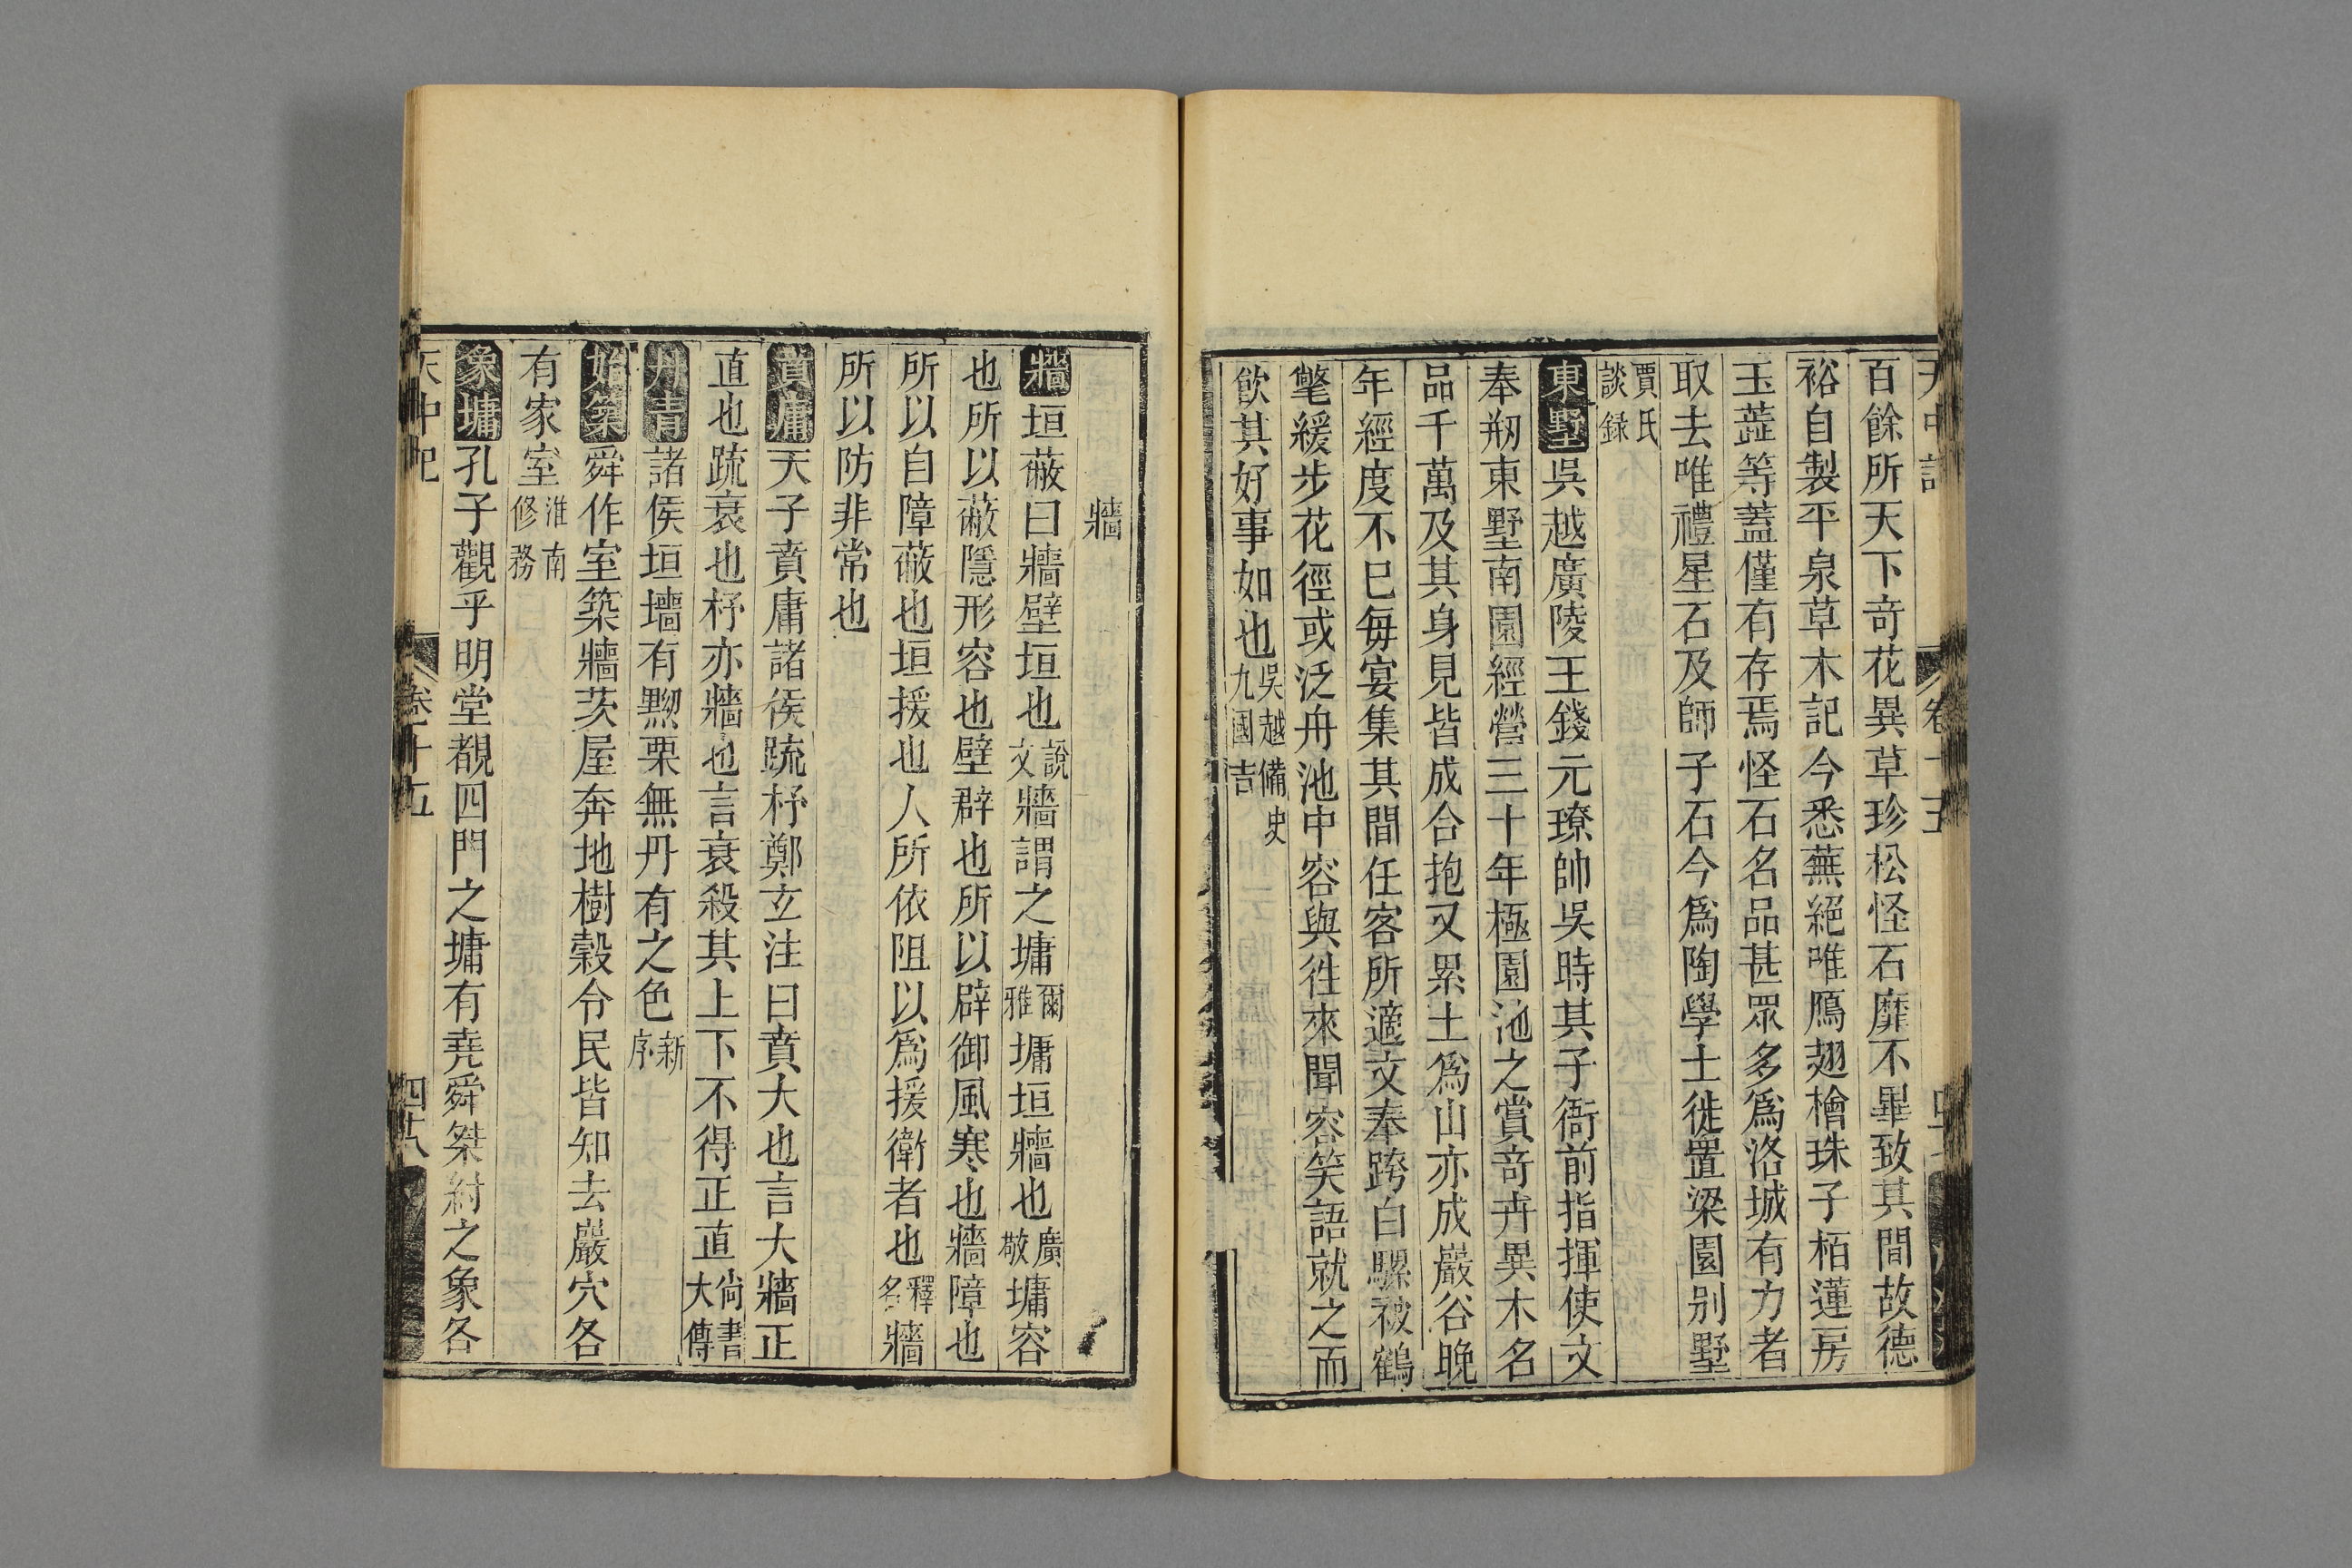 百餘所天下竒花異草珍松怪石靡不畢致其間故德
裕自製平泉草木記今悉蕪絕唯鴈翅檜珠子栢蓮房
玉蕋等蓋僅有存焉怪石名品甚眾多爲洛城有力者
取去唯禮星石及師子石今爲陶學士徙置梁園别墅
賈氏談録
東墅吳越廣陵王錢元璙帥吳時其子衙前指揮使文
奉剏東墅南園經營三十年極園池之賞竒卉異木名
品千萬及其身見皆成合抱又累土爲山亦成巖谷晚
年經度不已毎宴集其間任客所適文奉跨白騾被鶴
氅緩步花徑或泛舟池中容與徃來聞容笑語就之而
飲其好事如也吳越備史九國吉
牆
牆垣蔽曰牆壁垣也說文牆謂之墉爾雅墉垣牆也廣敬墉容
也所以蔽隱形容也壁辟也所以辟御風寒也牆障也
所以自障蔽也垣援也人所依阻以爲援衛者也釋名牆
所以防非常也
賁庸天子賁庸諸矦疏杼鄭玄注曰賁大也言大牆正
直也疏衰也杼亦牆也言衰殺其上下不得正直尙書大傳
丹青諸侯垣墻有黝堊無丹有之色新序
始築舜作室築牆茨屋奔地樹榖令民皆知去巖穴各
有家室淮南修務
象墉孔子觀乎明堂覩四門之墉有堯舜桀紂之象各
天中記 卷十五 四十八